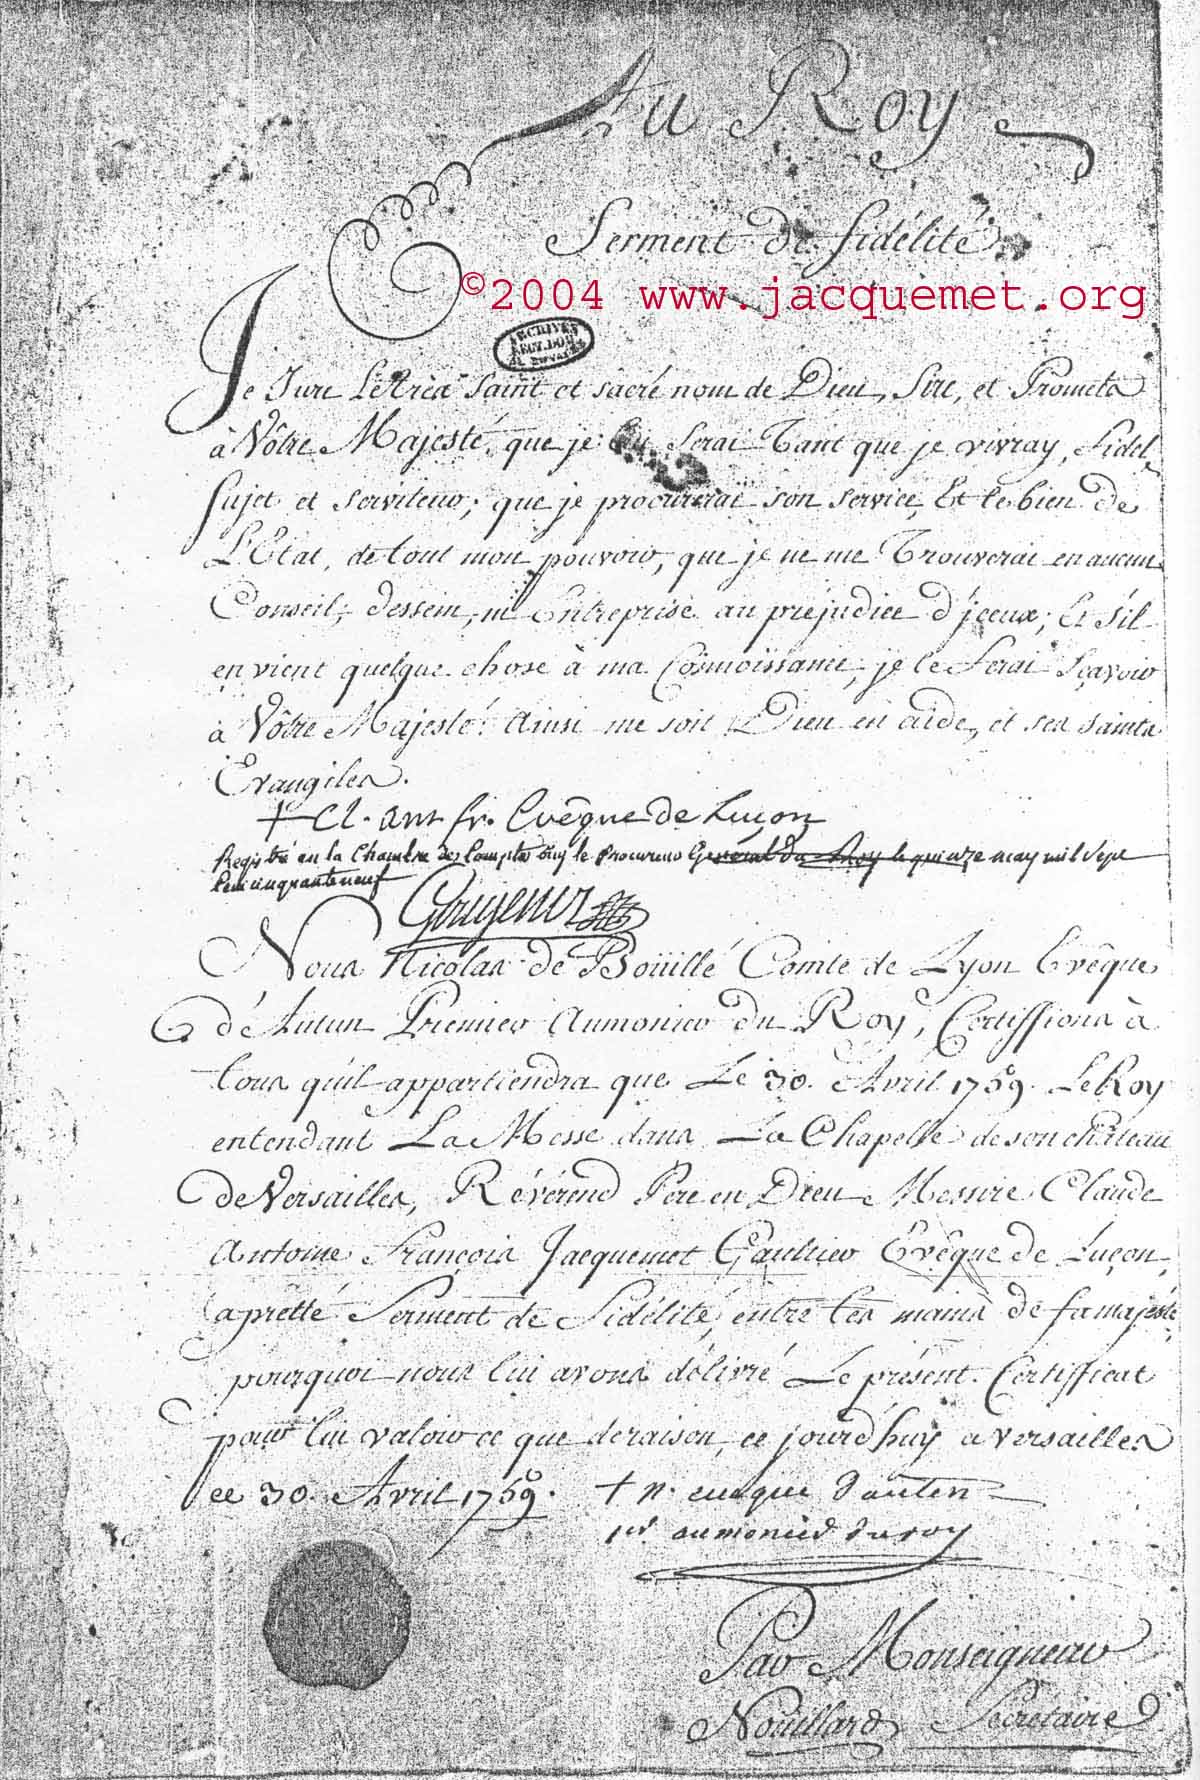 Au Roy
Serment de fidélité
©2004 www.jacquemet.org
ARCHIVES
Je Jure Le Très Saint et sacré nom de Dieu, Sire, et Promets
à Vôtre Majesté, que je Lui Serai Tant que je vivray, Fidel
Sujet et Serviteur; que je procurerai son service, Et le bien de
L'Etat, de tout mon pouvoir, que je ne me Trouverai en aucun
Conseil, dessein, ni Entreprise au préjudice d'jceux; Et s'il
en vient quelque chose à ma Connoissance, je le Ferai Sçavoir
à Vôtre Majesté. Ainsi me soit Dieu en aide, et ses saints
Evangiles.
+ Cl. ant. fr. Evêque de Luçon
Registré en la Chambre des Comptes Ouy le Procureur Général du Roy le quinze may mil Sept
Cent cinquante neuf
Nous Nicolas de Boüillé Comte de Lyon Evêque
d'Autun Premier Aumonier du Roy, Certiffions à
tous qu'il appartiendra que Le 30. Avril 1759. Le Roy
entendant La Messe dans La Chapelle de son château
de Versailles, Révérend Pere en Dieu Messire Claude
Antoine François Jacquemet Gaultier Evêque de Luçon,
a prêtté Serment de Fidélité, entre les mains de sa majesté
pourquoi nous lui avons délivré Le présent Certifficat
pour lui valoir ce que de raison, ce jourd'huy a Versailles
ce 30. Avril 1759.
+ n. eveque d'autun
1er aumonier du roy
Par Monseigneur
Noüillard Secretaire